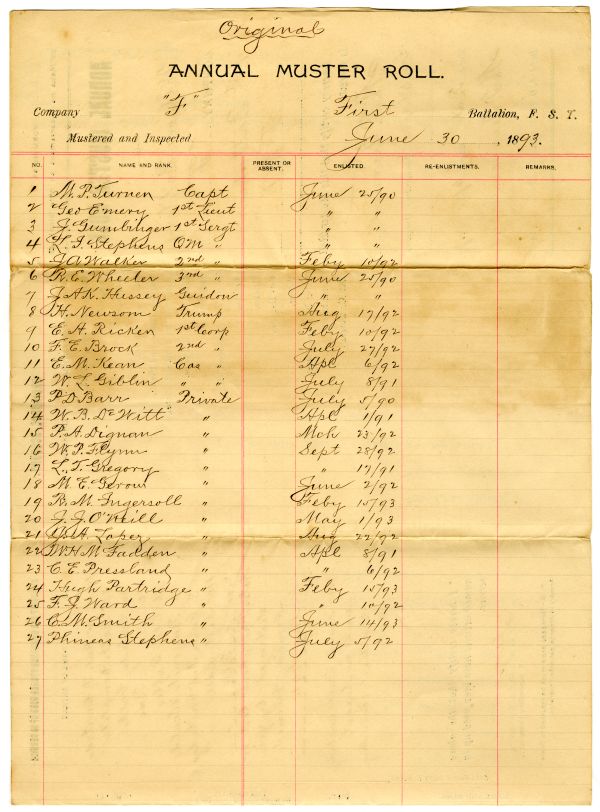 Original
ANNUAL MUSTER ROLL.
Company "F" First Battalion, F. S. T.
Mustered and Inspected. June 30, 1893.
NO. NAME AND RANK. PRESENT OR ABSENT. ENLISTED. RE-ENLISTMENTS. REMARKS.
1 M. P. Turnen Capt June 25/90
2 Geo Emery 1st Lieut " "
3 J. Gumbinger 1st Sergt " "
4 L. I. Stephens QM " " "
5 J A Walker 2nd " Feby 10/92
6 R. E. Wheeler 3rd " June 25/90
7 J A K. Hussey Guidon " "
8 H. Newsom Trump Aug 17/92
9 E. H. Ricken 1st Corp Feby 10/92
10 F. E. Brock 2nd " July 27/92
11 E. M. Kean Cos " Apl 6/92
12 W. L. Giblin " " July 8/91
13 P. D. Barr Private July 5/90
14 W. B. De Witt " Apl 1/91
15 P. A. Dignan " Mch 23/92
16 W. P. Flynn " Sept 28/92
17 L. T. Gregory " " 17/91
18 M. E. Gerow " June 2/92
19 R. M. Ingersoll " Feby 15/93
20 J. J. O'Neill " May 1/93
21 A. Lopez " Aug 22/92
22 W H M. Fadden " Apl 8/91
23 C. E. Pressland " " 6/92
24 Hugh Partridge " Feby 15/93
25 F. J. Ward " " 10/92
26 C. M. Smith " June 14/93
27 Phineas Stephens " July 5/92